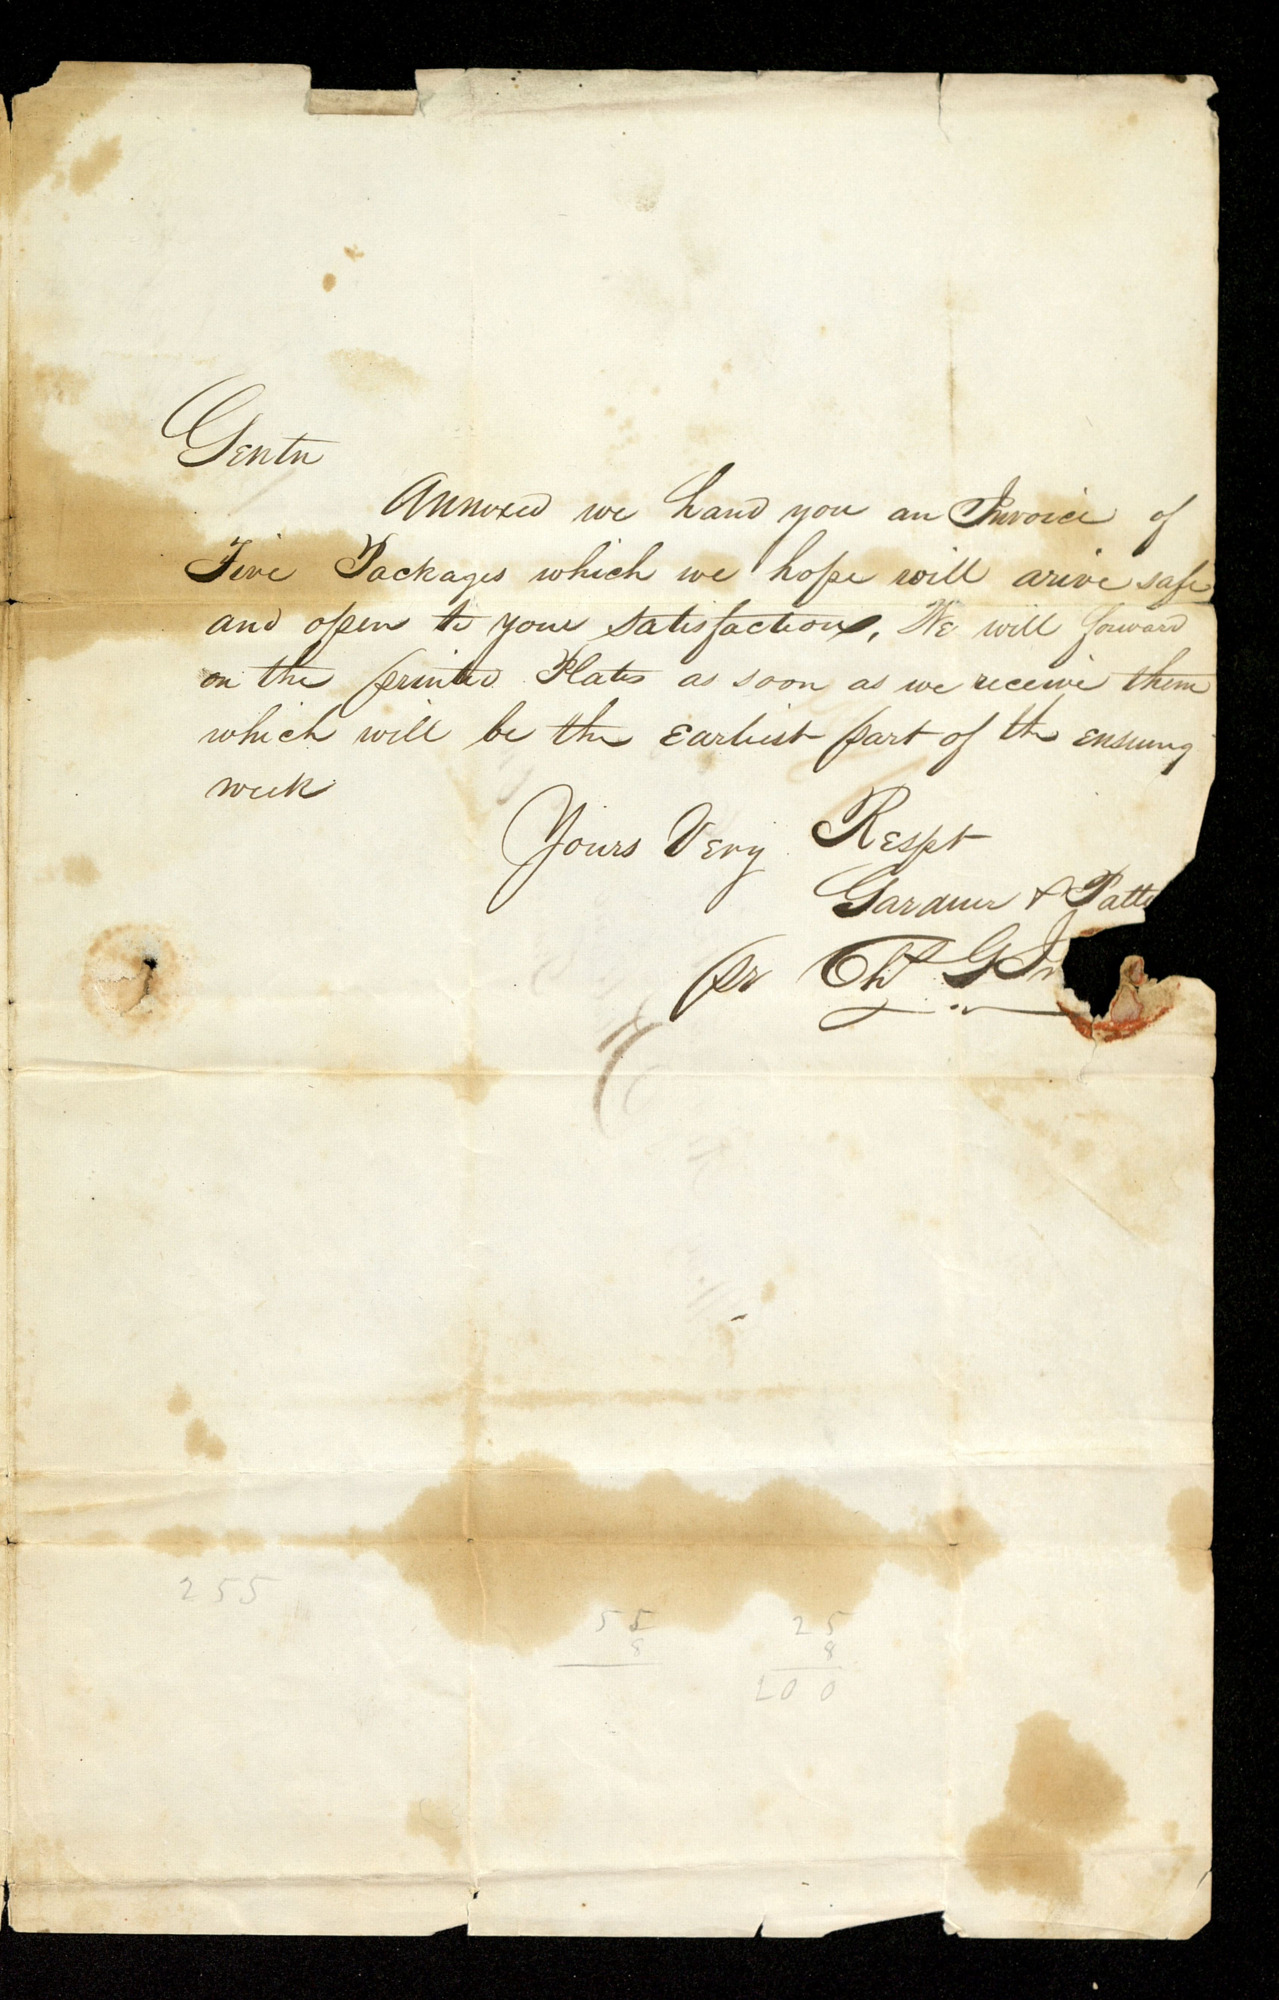 Gentn
Annexed we hand you an Invoice of
Five Packages which we hope will arive safe
and open to your satisfaction. We will forward
on the printed Plates as soon as we receive them
which will be the earliest part of the ensuing
week
Yours Very Respt
Gardner & Patte
pr Chs G
255
55
8
25
8
200